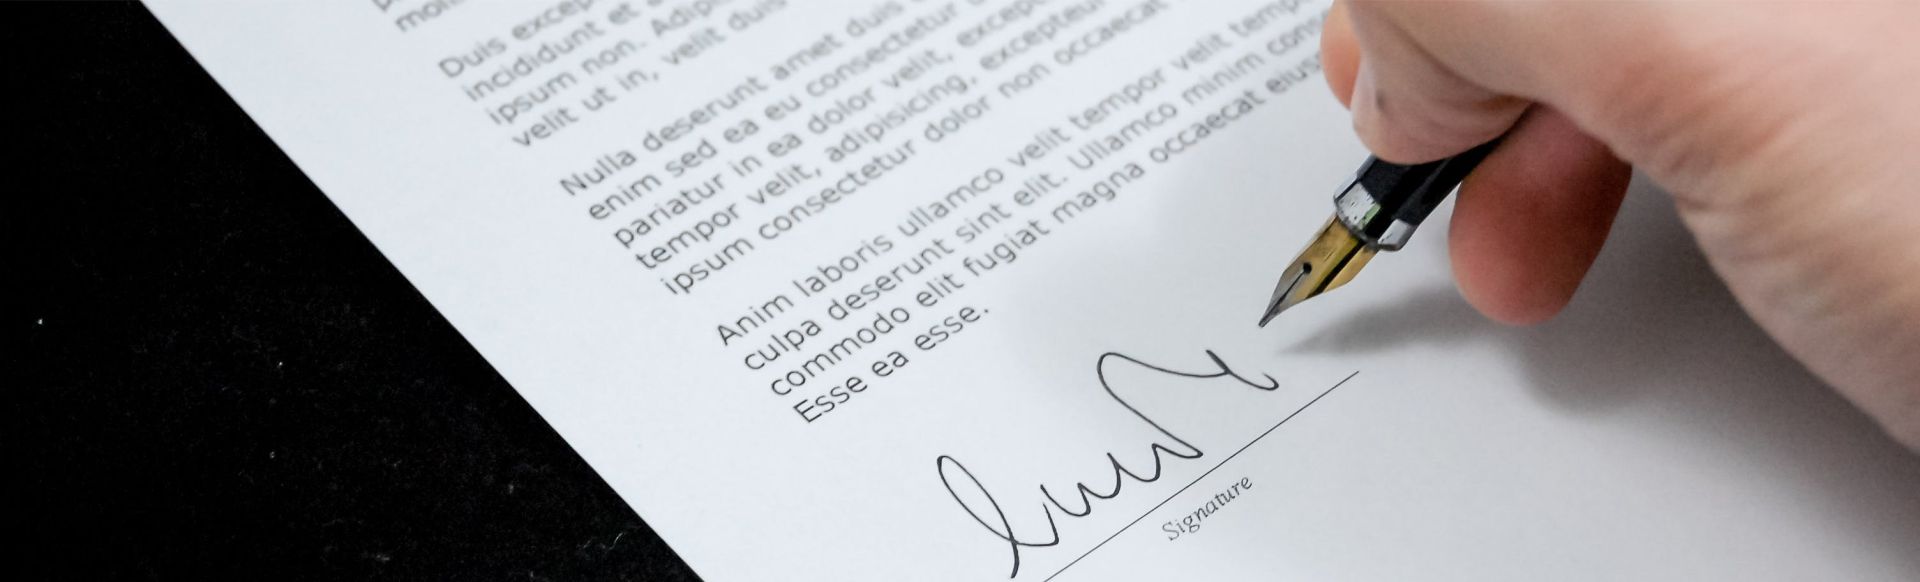 Duis excep
incididunt et
ipsum non. Adipi
velit ut in, velit duis
Nulla deserunt amet duis
enim sed ea eu consectetur
pariatur in ea dolor velit, excep
tempor velit, adipisicing, excepteur
ipsum consectetur dolor non occaecat
Anim laboris ullamco velit tempor velit temp
culpa deserunt sint elit. Ullamco minim cons
commodo elit fugiat magna occaecat eius
Esse ea esse.
Signature